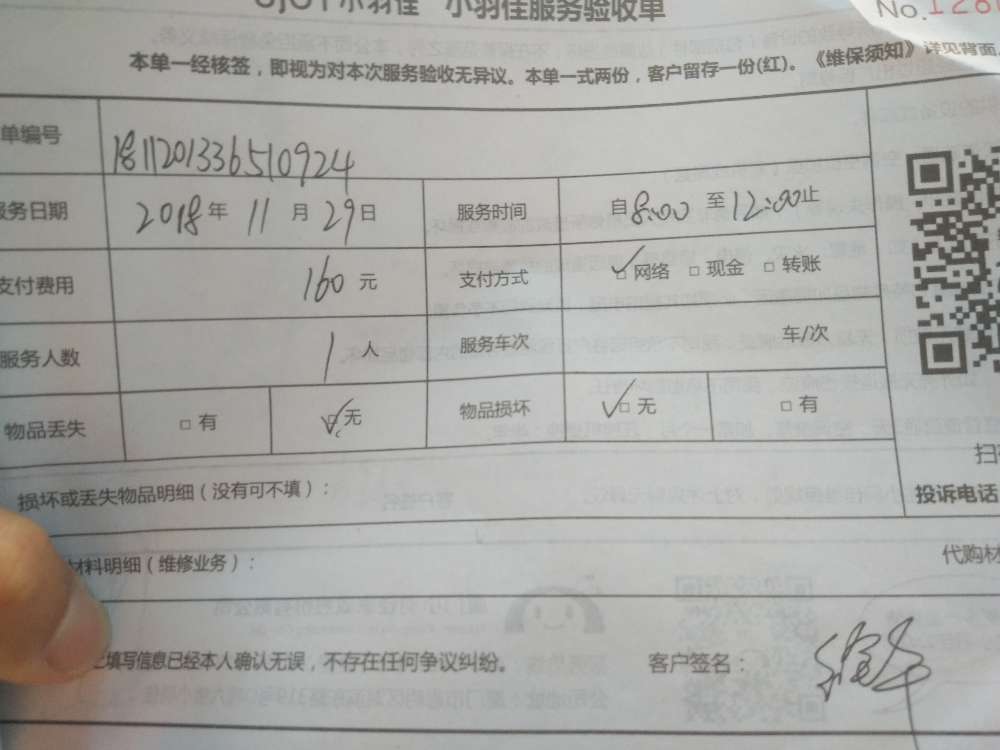 小羽佳 小羽佳服务验收单
No.128
本单一经核签，即视为对本次服务验收无异议。本单一式两份，客户留存一份(红)。《维保须知》详见背面
单编号 1811201336510924
服务日期 2018年 11月 29日 服务时间 自8:00 至12:00止
支付费用 160 元 支付方式 □网络 □现金 □转账
服务人数 1 人 服务车次 车/次
物品丢失 □有 □无 物品损坏 □无 □有
扫
损坏或丢失物品明细（没有可不填）：
投诉电话
材料明细（维修业务）：
代购材
上填写信息已经本人确认无误，不存在任何争议纠纷。 客户签名：